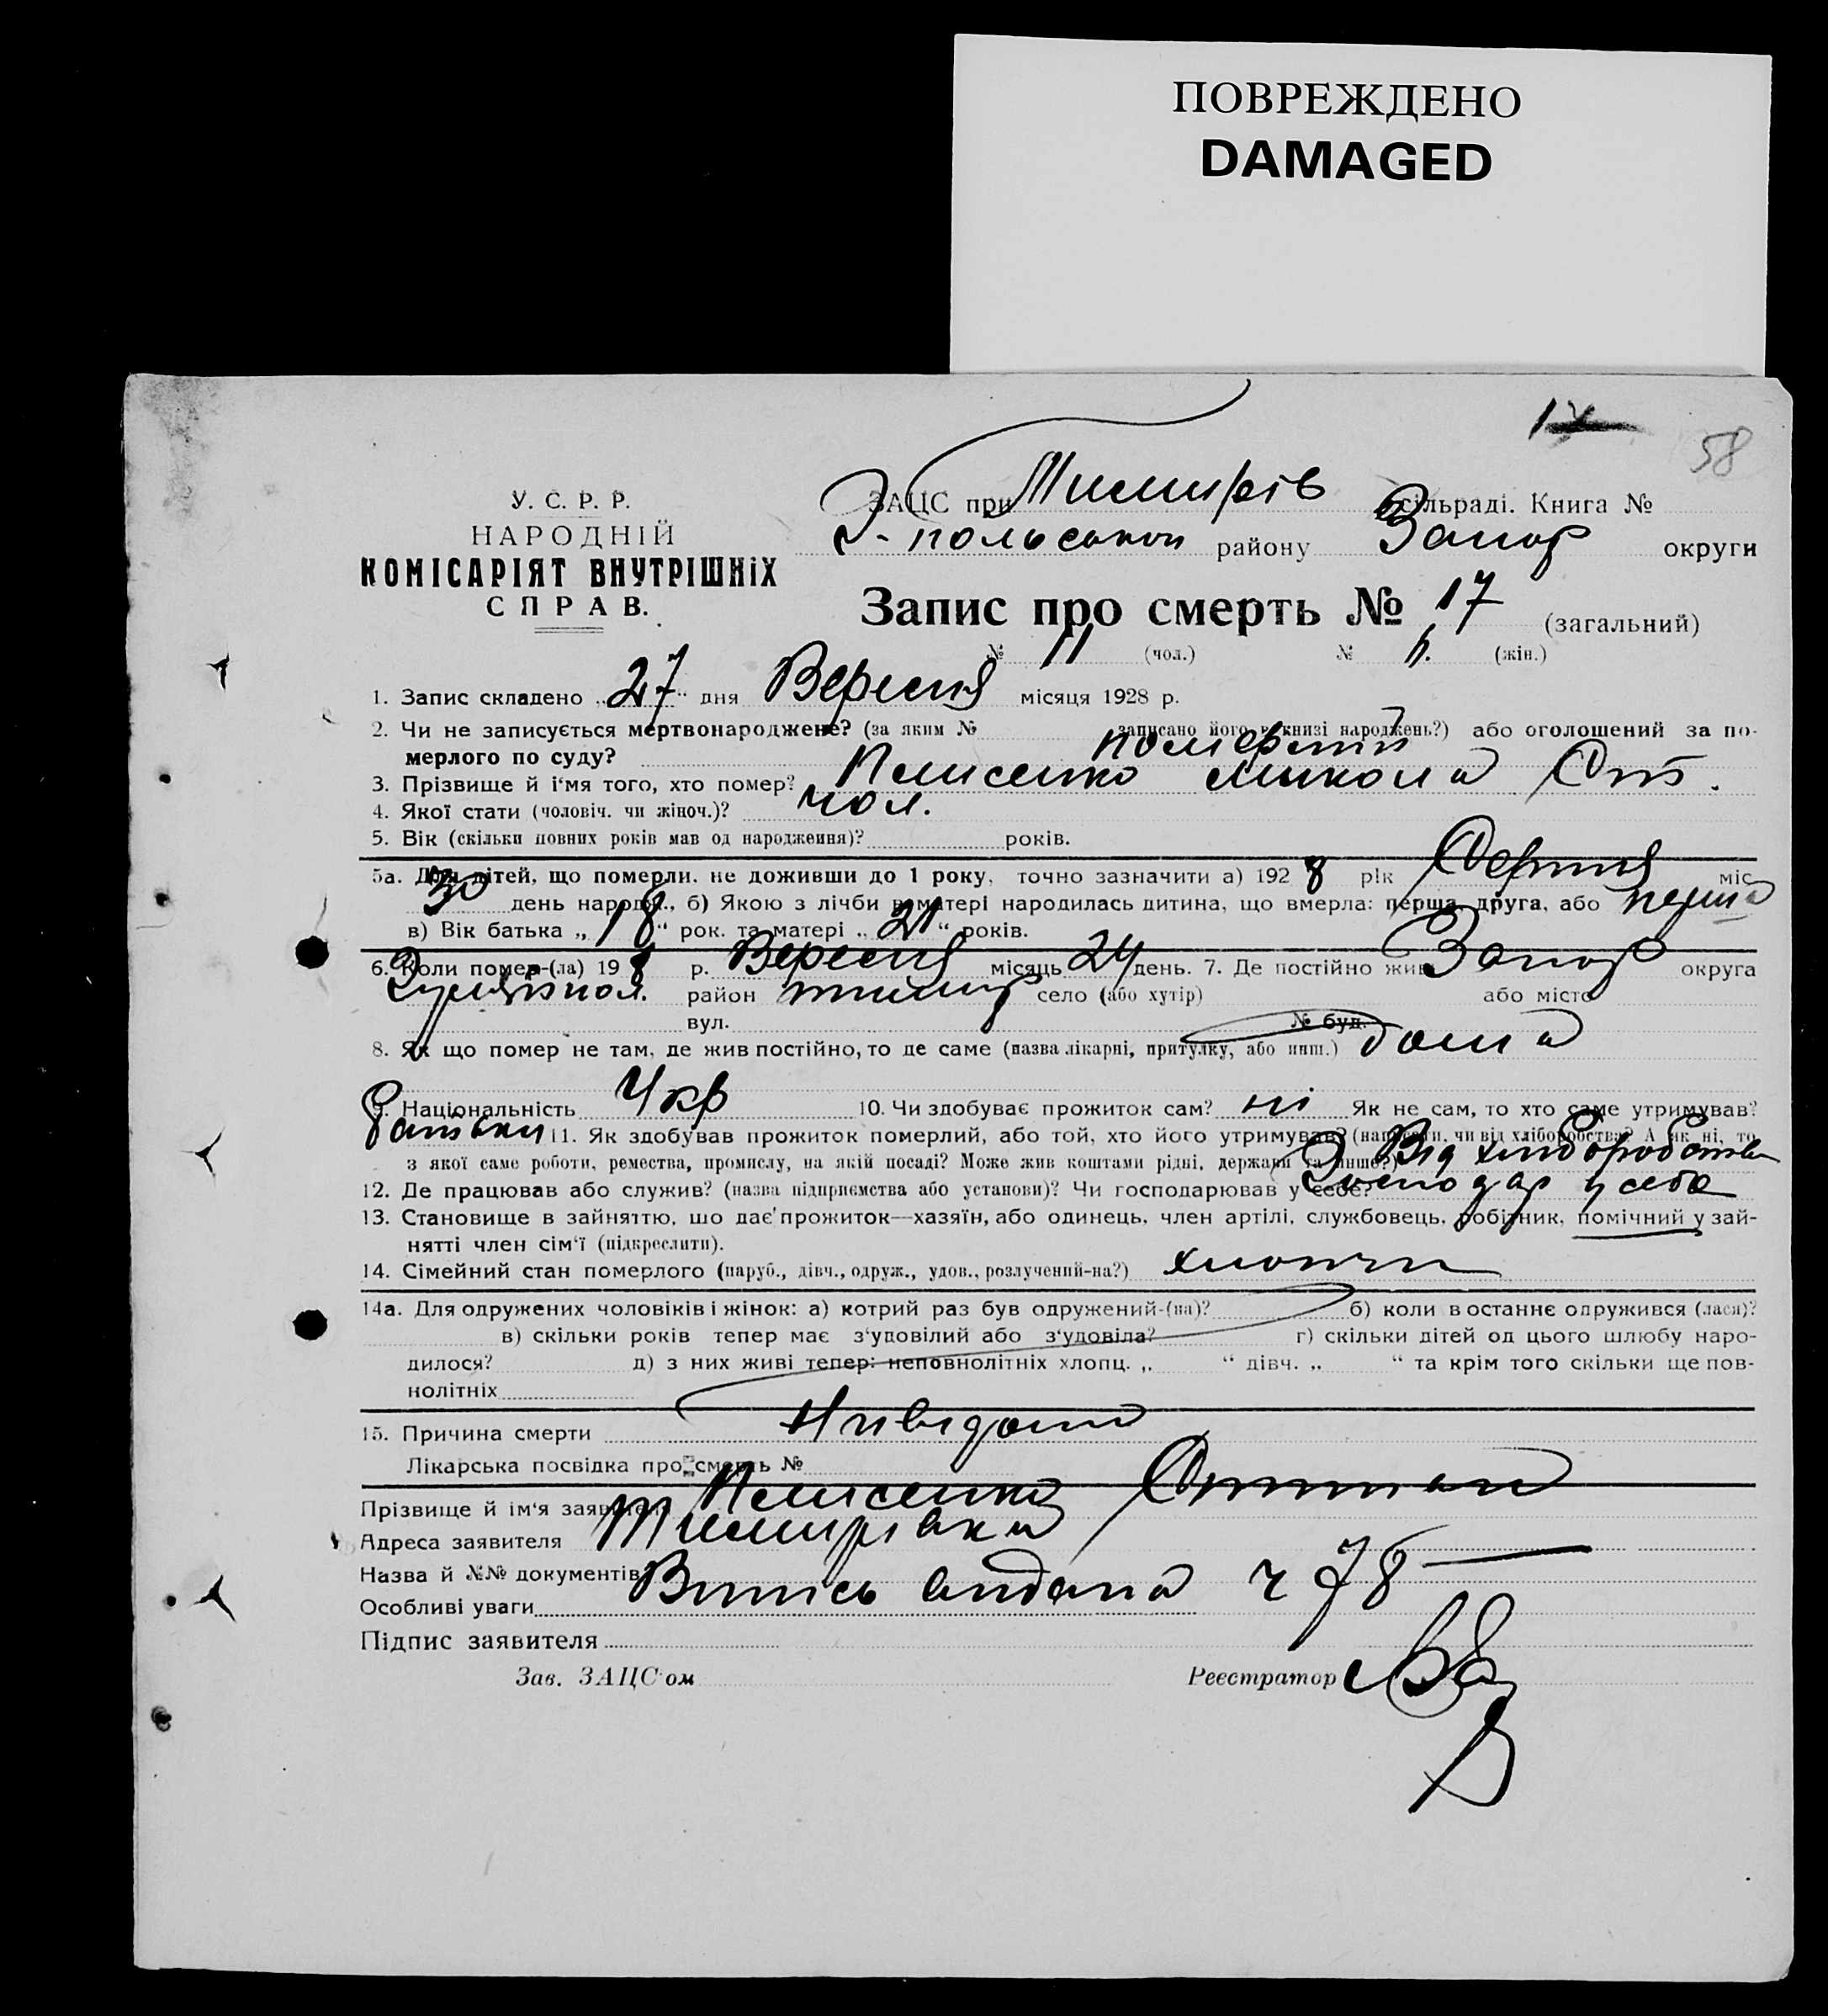 ПОВРЕЖДЕНО
DAMAGED
58
У. С. Р. Р.
НАРОДНІЙ
КОМІСАРІЯТ ВНУТРІШНІХ
СПРАВ.
ЗАЦС при сільраді. Книга №
району Запор округи
Запис про смерть № 17 (загальний)
№ 11 (чол.) № (жін.)
1. Запис складено „27“ дня Вересня місяця 1928 р.
2. Чи не записується мертвонароджене? (за яким № записано його в книзі народжень?) або оголошений за по-
мерлого по суду? померший
3. Прізвище й і'мя того, хто помер? Микола
4. Якої стати (чоловіч. чи жіноч.)? чол.
5. Вік (скільки повних років мав од народження)? років.
5а. Для дітей, що померли, не доживши до 1 року, точно зазначити а) 1928 рік Серпня міс.
30 день народж., б) Якою з лічби в матері народилась дитина, що вмерла: перша, друга, або перша
в) Вік батька „18“ рок. та матері „21“ років.
6. Коли помер-(ла) 198 р. Вересня місяць 24 день. 7. Де постійно жив Запор округа
район село (або хутір) або місто
вул. № буд.
8. Як що помер не там, де жив постійно, то де саме (назва лікарні, притулку, або инш.) дома
9. Національність Укр 10. Чи здобуває прожиток сам? ні Як не сам, то хто саме утримував?
батьки 11. Як здобував прожиток померлий, або той, хто його утримував? (написати, чи від хліборобства? А як ні, то
з якої саме роботи, ремества, промислу, на якій посаді? Може жив коштами рідні, держави та инше?) Від хліборобства
12. Де працював або служив? (назва підприємства або установи)? Чи господарював у себе? Господар у себе
13. Становище в зайняттю, що дає прожиток—хазяїн, або одинець, член артілі, службовець, робітник, помічний у зай-
нятті член сім'ї (підкреслити).
14. Сімейний стан померлого (паруб., дівч., одруж., удов., розлучений-на?) хлопчи
14а. Для одружених чоловіків і жінок: а) котрий раз був одружений-(на)? б) коли востаннє одружився (лася)?
в) скільки років тепер має з'удовілий або з'удовіла? г) скільки дітей од цього шлюбу наро-
дилося? д) з них живі тепер: неповнолітніх хлопц. „ “ дівч. „ “ та крім того скільки ще пов-
нолітніх
15. Причина смерти Нивідома
Лікарська посвідка про смерть №
Прізвище й ім'я заявителя
Адреса заявителя
Назва й №№ документів
Особливі уваги Випись видана ч 78
Підпис заявителя
Зав. ЗАЦС'ом Реєстратор